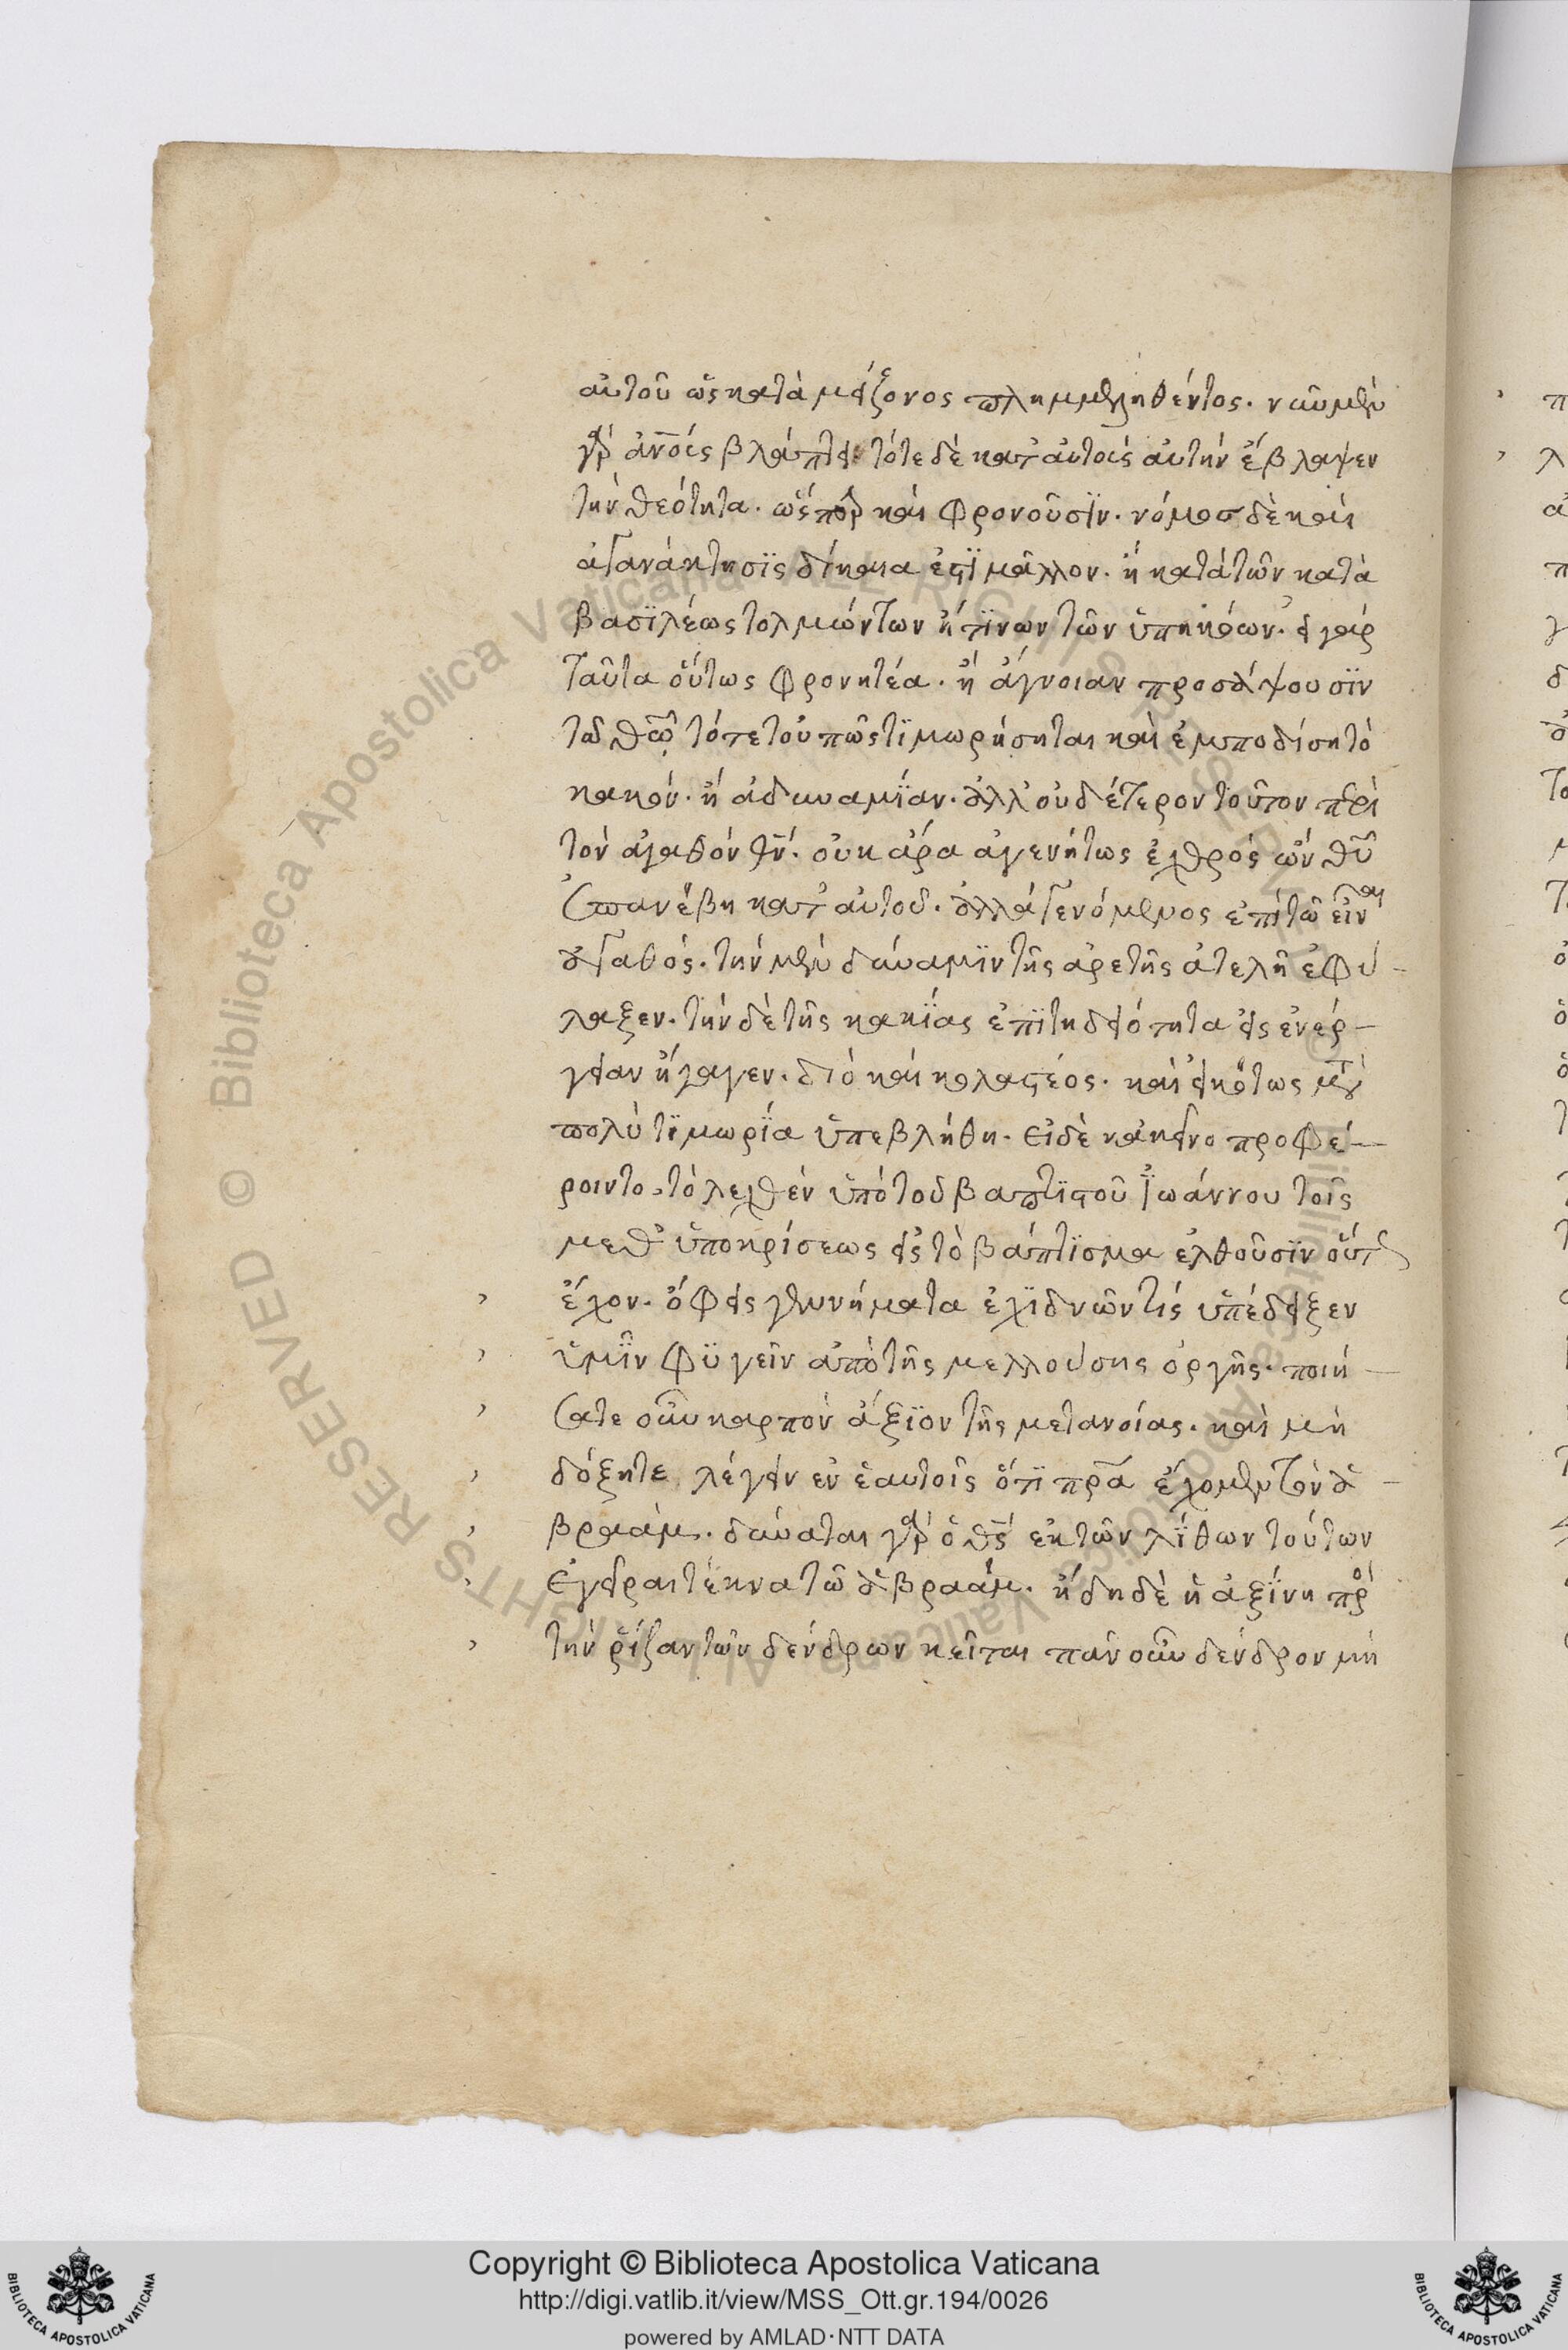 αὐτοῦ ὡς κατὰ μείζονος πλημμεληθέντος. νῦν μὲν
γὰρ ἀνοῖς βλάπτει· τότε δὲ κατ' αὐτοὺς αὐτὴν ἔβλαψεν
τὴν θεότητα. ὥσπερ καὶ φρονοῦσϊν. νόμος δὲ καὶ
ἀγανάκτησϊς δίκαια ἐστϊ μᾶλλον. ἢ κατὰ τῶν κατὰ
βασϊλέως τολμώντων ἤ τϊνων τῶν ὑπηκόων. εἰ γὰρ
ταῦτα οὕτως φρονητέα. ἢ ἄγνοιαν προσάψουσϊν
τῶ θῶ τό τε τοῦ πῶς τϊμωρήσηται καὶ ἐμποδίση τὸ
κακόν. ἢ ἀδυναμΐαν. ἀλλ' οὐδέτερον τοῦτον περὶ
τὸν ἀγαθὸν θν. οὐκ ἄρα ἀγενήτως ἐχθρὸς ὢν θυ
ἐπανέβη κατ' αὐτοῦ. ἀλλὰ γενόμενος ἐπὶ τῶ εἶναι
ἀγαθός. τὴν μὲν δύναμϊν τῆς ἀρετῆς ἀτελῆ ἐφύ-
λαξεν. τὴν δὲ τῆς κακΐας ἐπϊτηδειότητα εἰς ἐνέρ-
γειαν ἤγαγεν. διὸ καὶ κολαστέος. καὶ εἰκότως μετὰ
πολὺ τϊμωρΐα ὑπεβλήθη. εἰ δὲ κἀκεῖνο προφέ-
ροιντο. τὸ λεχθὲν ὑπὸ τοῦ βαπτϊστοῦ Ἰωάννου τοῖς
μεθ' ὑποκρίσεως εἰς τὸ βάπτϊσμα ἐλθοῦσϊν οὕτως
ἔχον. ὄφεις γεννήματα ἐχϊδνῶν τίς ὑπέδειξεν
ὑμῖν φϋγεῖν ἀπὸ τῆς μελλούσης ὀργῆς. ποιή-
σατε οὖν καρπὸν ἄξϊον τῆς μετανοίας. καὶ μὴ
δόξητε λέγειν ἐν ἑαυτοῖς ὅτϊ πρα ἔχομεν τὸν ἀ-
βραάμ. δύναται γὰρ ὁ θς ἐκ τῶν λΐθων τούτων
ἐγεῖραι τέκνα τῶ ἀβραάμ. ἤδη δὲ ἡ ἀξΐνη πρὸς
τὴν ῥίζαν τῶν δένδρων κεῖται πᾶν οὖν δένδρον μὴ
Copyright © Biblioteca Apostolica Vaticana
http://digi.vatlib.it/view/MSS_Ott.gr.194/0026
powered by AMLAD·NTT DATA